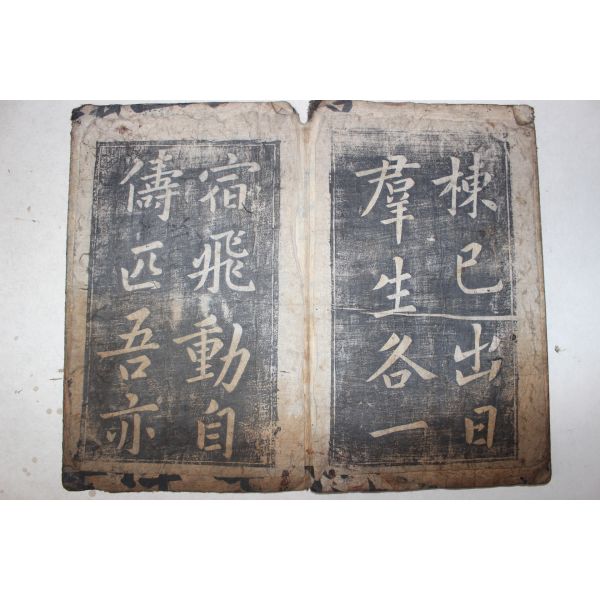 棟已出日
羣生各一
宿飛動自
儔匹吾亦